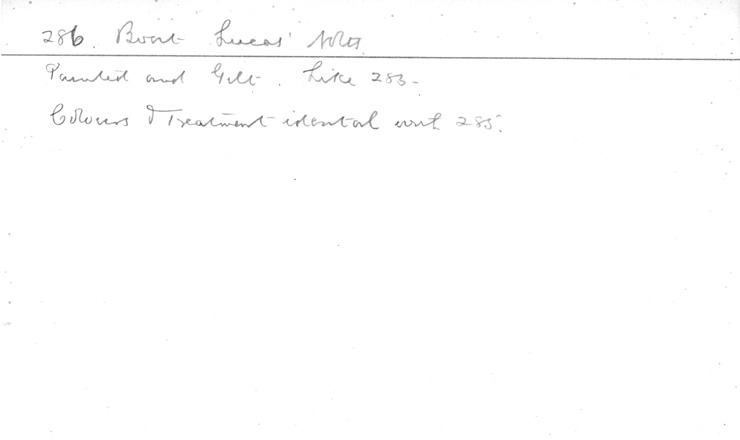 286. Lucas' Notes
Painted and Gilt. Like 285.
Colours & Treatment idental with 285.